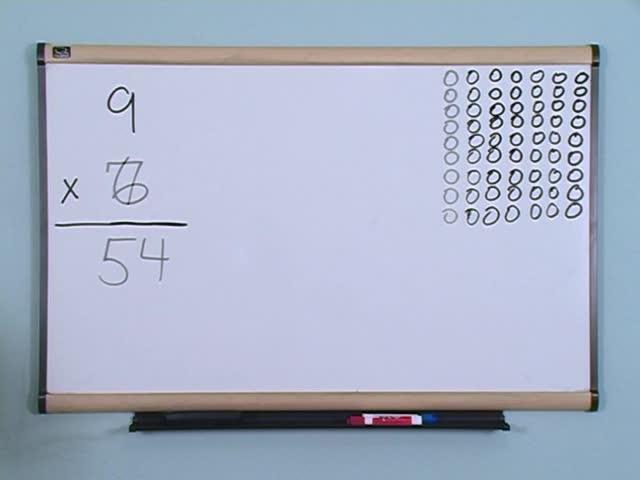 9
x 76
54